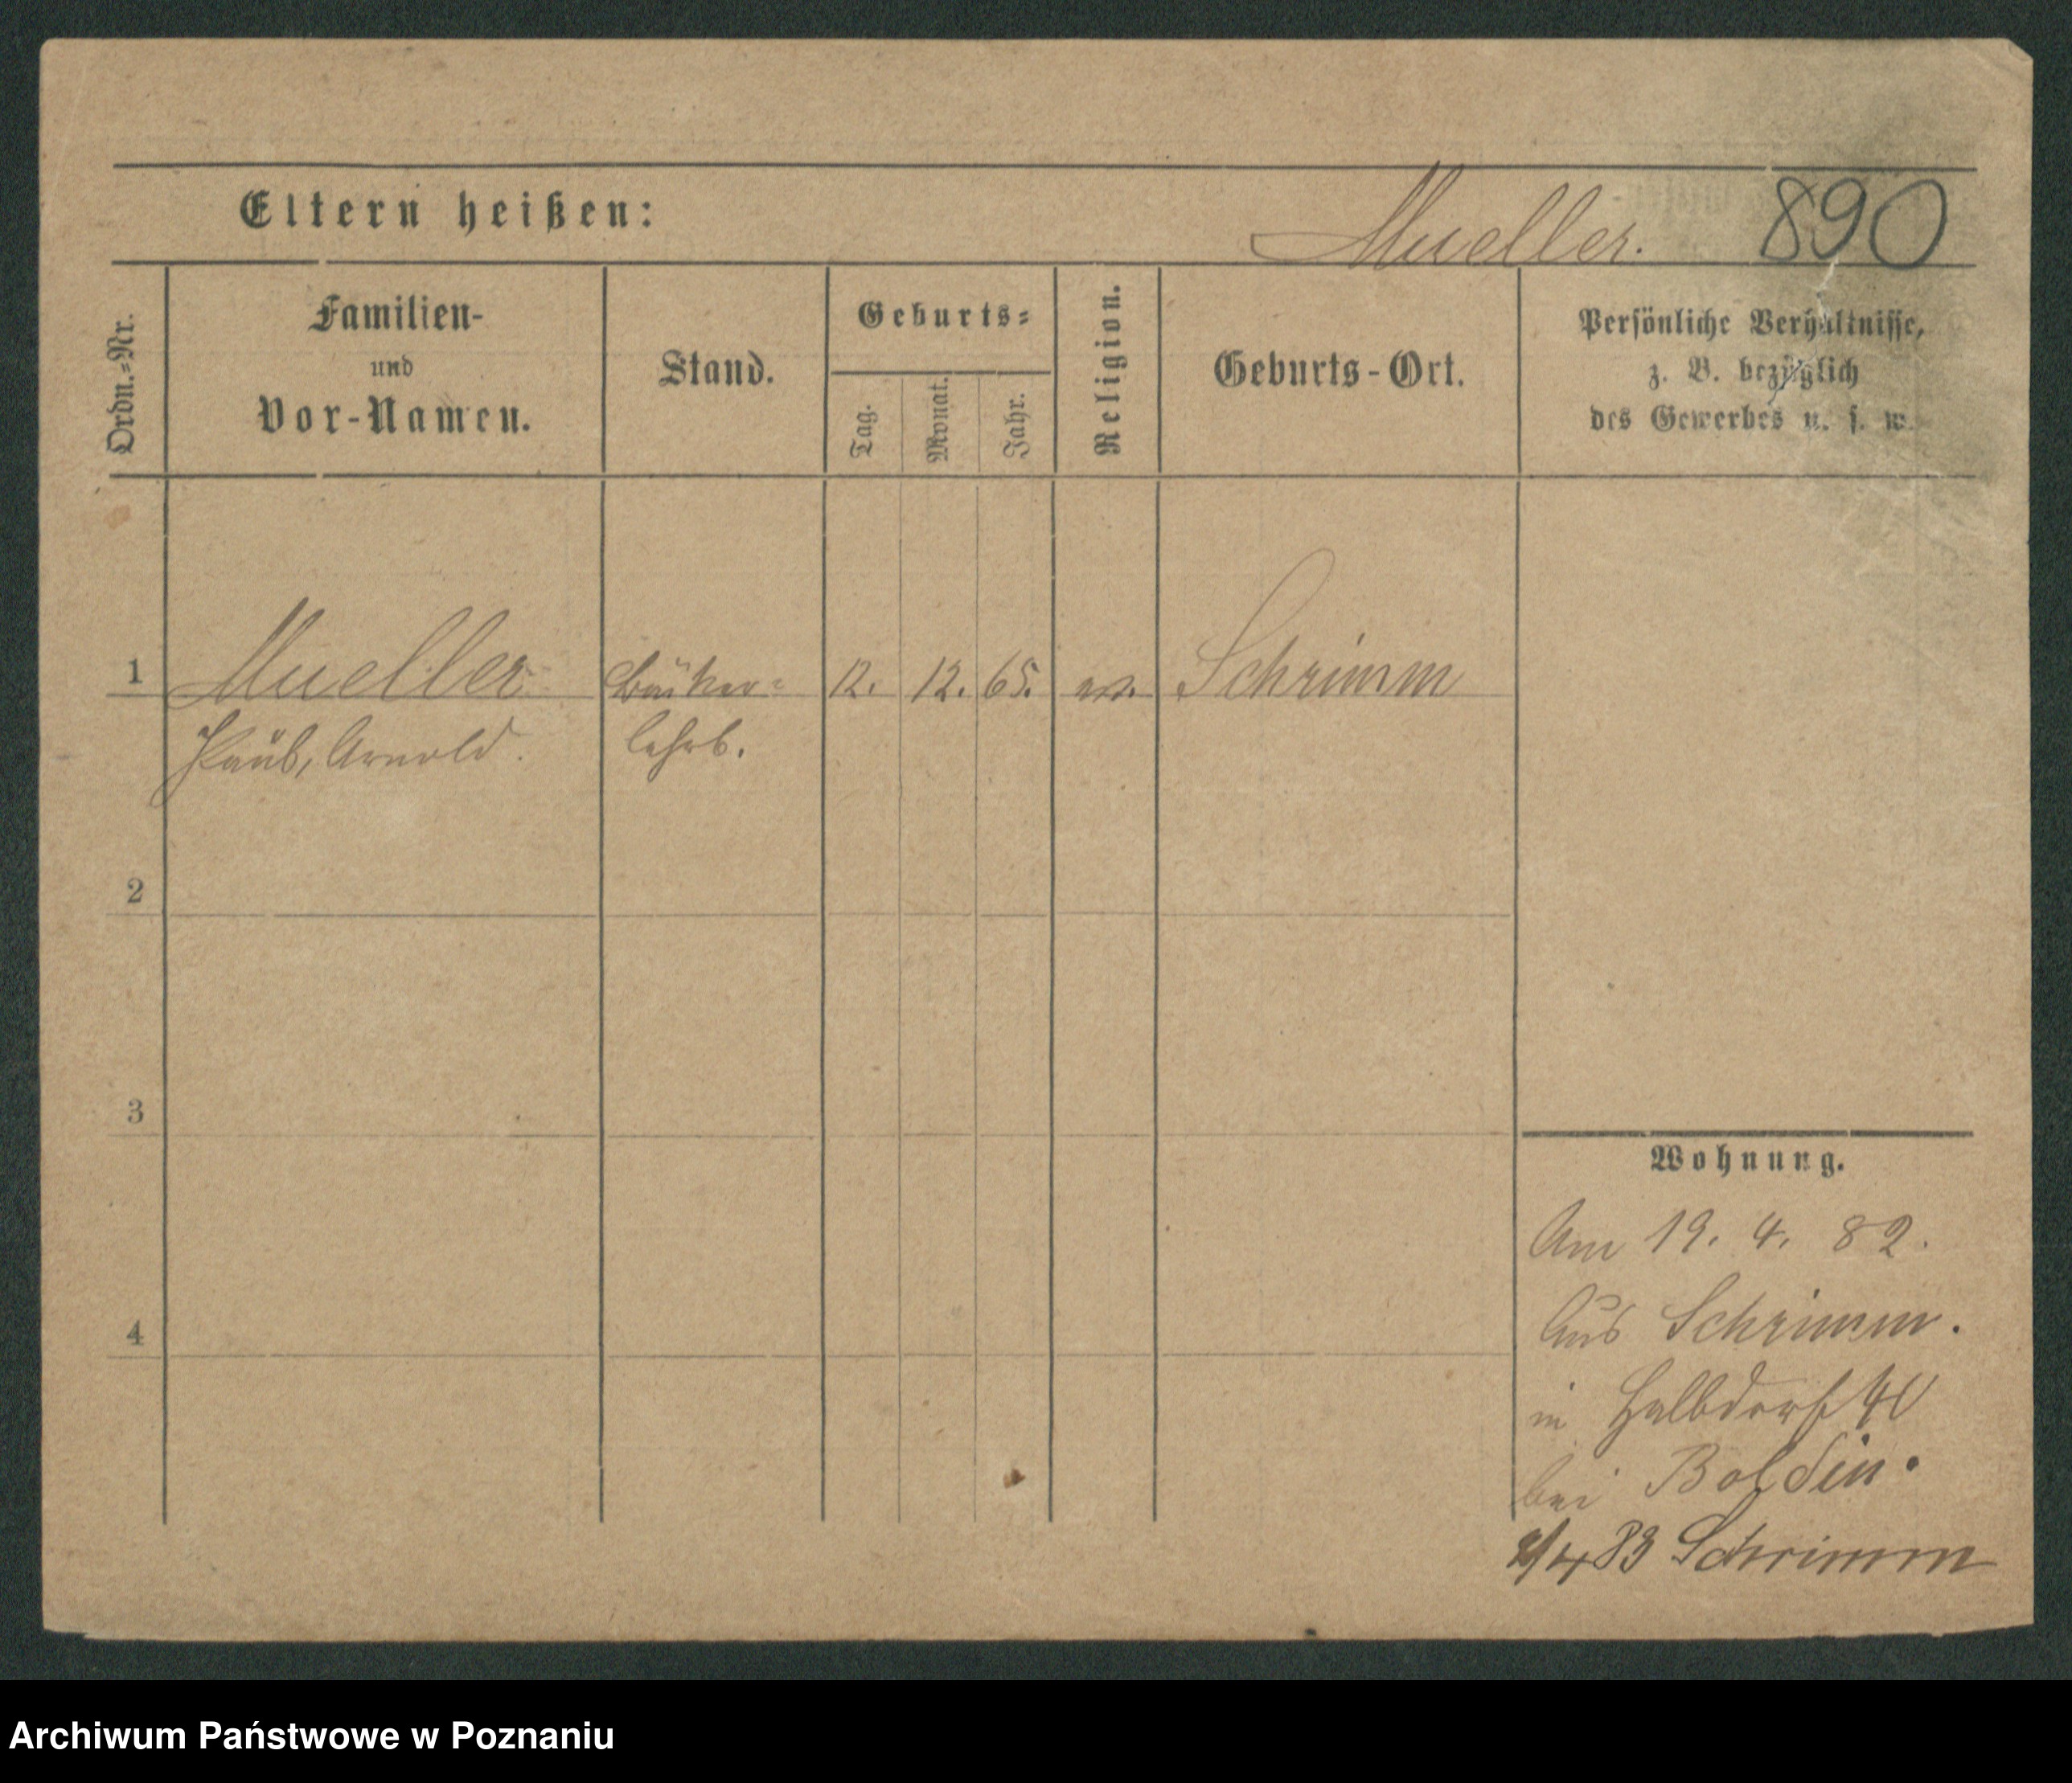 Eltern heißen: Mueller. 890
Ordn.-Nr.
Familien-
und
Vor-Namen.
Stand.
Geburts-
Tag.
Monat.
Jahr.
Religion.
Geburts-Ort.
Persönliche Verhältnisse,
z. B. bezüglich
des Gewerbes u. s. w.
1 Mueller Bäcker- 12. 12. 65. ev. Schrimm
Arnold. lehrl.
2
3
4
Wohnung.
Am 19. 4. 82.
Aus Schrimm.
in Halbdorf 40
bei Boldin.
/4 83 Schrimm
Archiwum Państwowe w Poznaniu